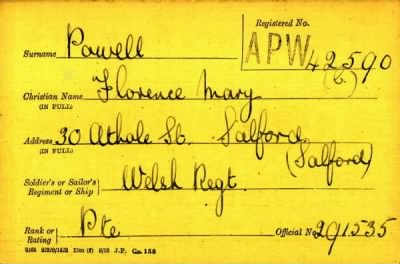 Registered No.
APW 42590
(C.)
Surname Powell
Christian Name Florence Mary
(IN FULL)
Address 30 Athole St. Salford
(IN FULL)
(Salford)
Soldier's or Sailor's
Regiment or Ship Welsh Regt.
Rank or
Rating Pte Official No 291535